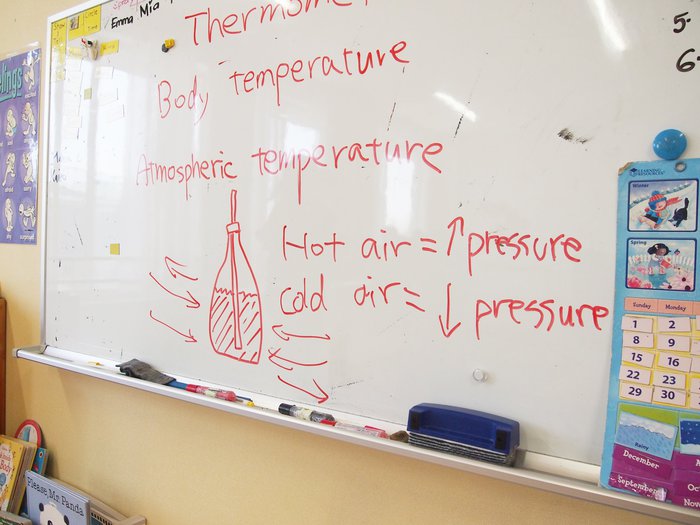 Circle
Time
Emma Mia
Thermome
Body temperature
Atmospheric temperature
Hot air = ↑ pressure
Cold air = ↓ pressure
5.
6.
LEARNING
RESOURCES
Winter
Spring
Sunday Monday
1 2
8 9
15 16
22 23
29 30
Rainy
December
September
Please, Mr. Panda